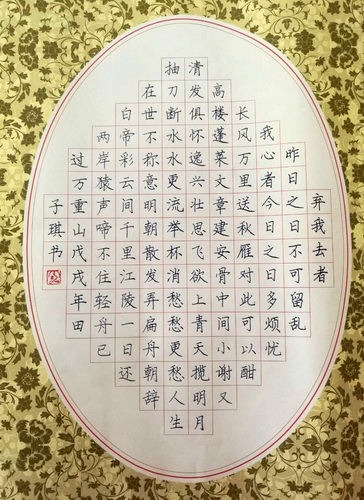 弃我去者
昨日之日不可留乱
我心者今日之日多烦忧
长风万里送秋雁对此可以酣
高楼蓬莱文章建安骨中间小谢又
清发俱怀逸兴壮思飞欲上青天揽明月
抽刀断水水更流举杯消愁愁更愁人生
在世不称意明朝散发弄扁舟朝辞
白帝彩云间千里江陵一日还
两岸猿声啼不住轻舟已
过万重山戊戌年田
子琪书